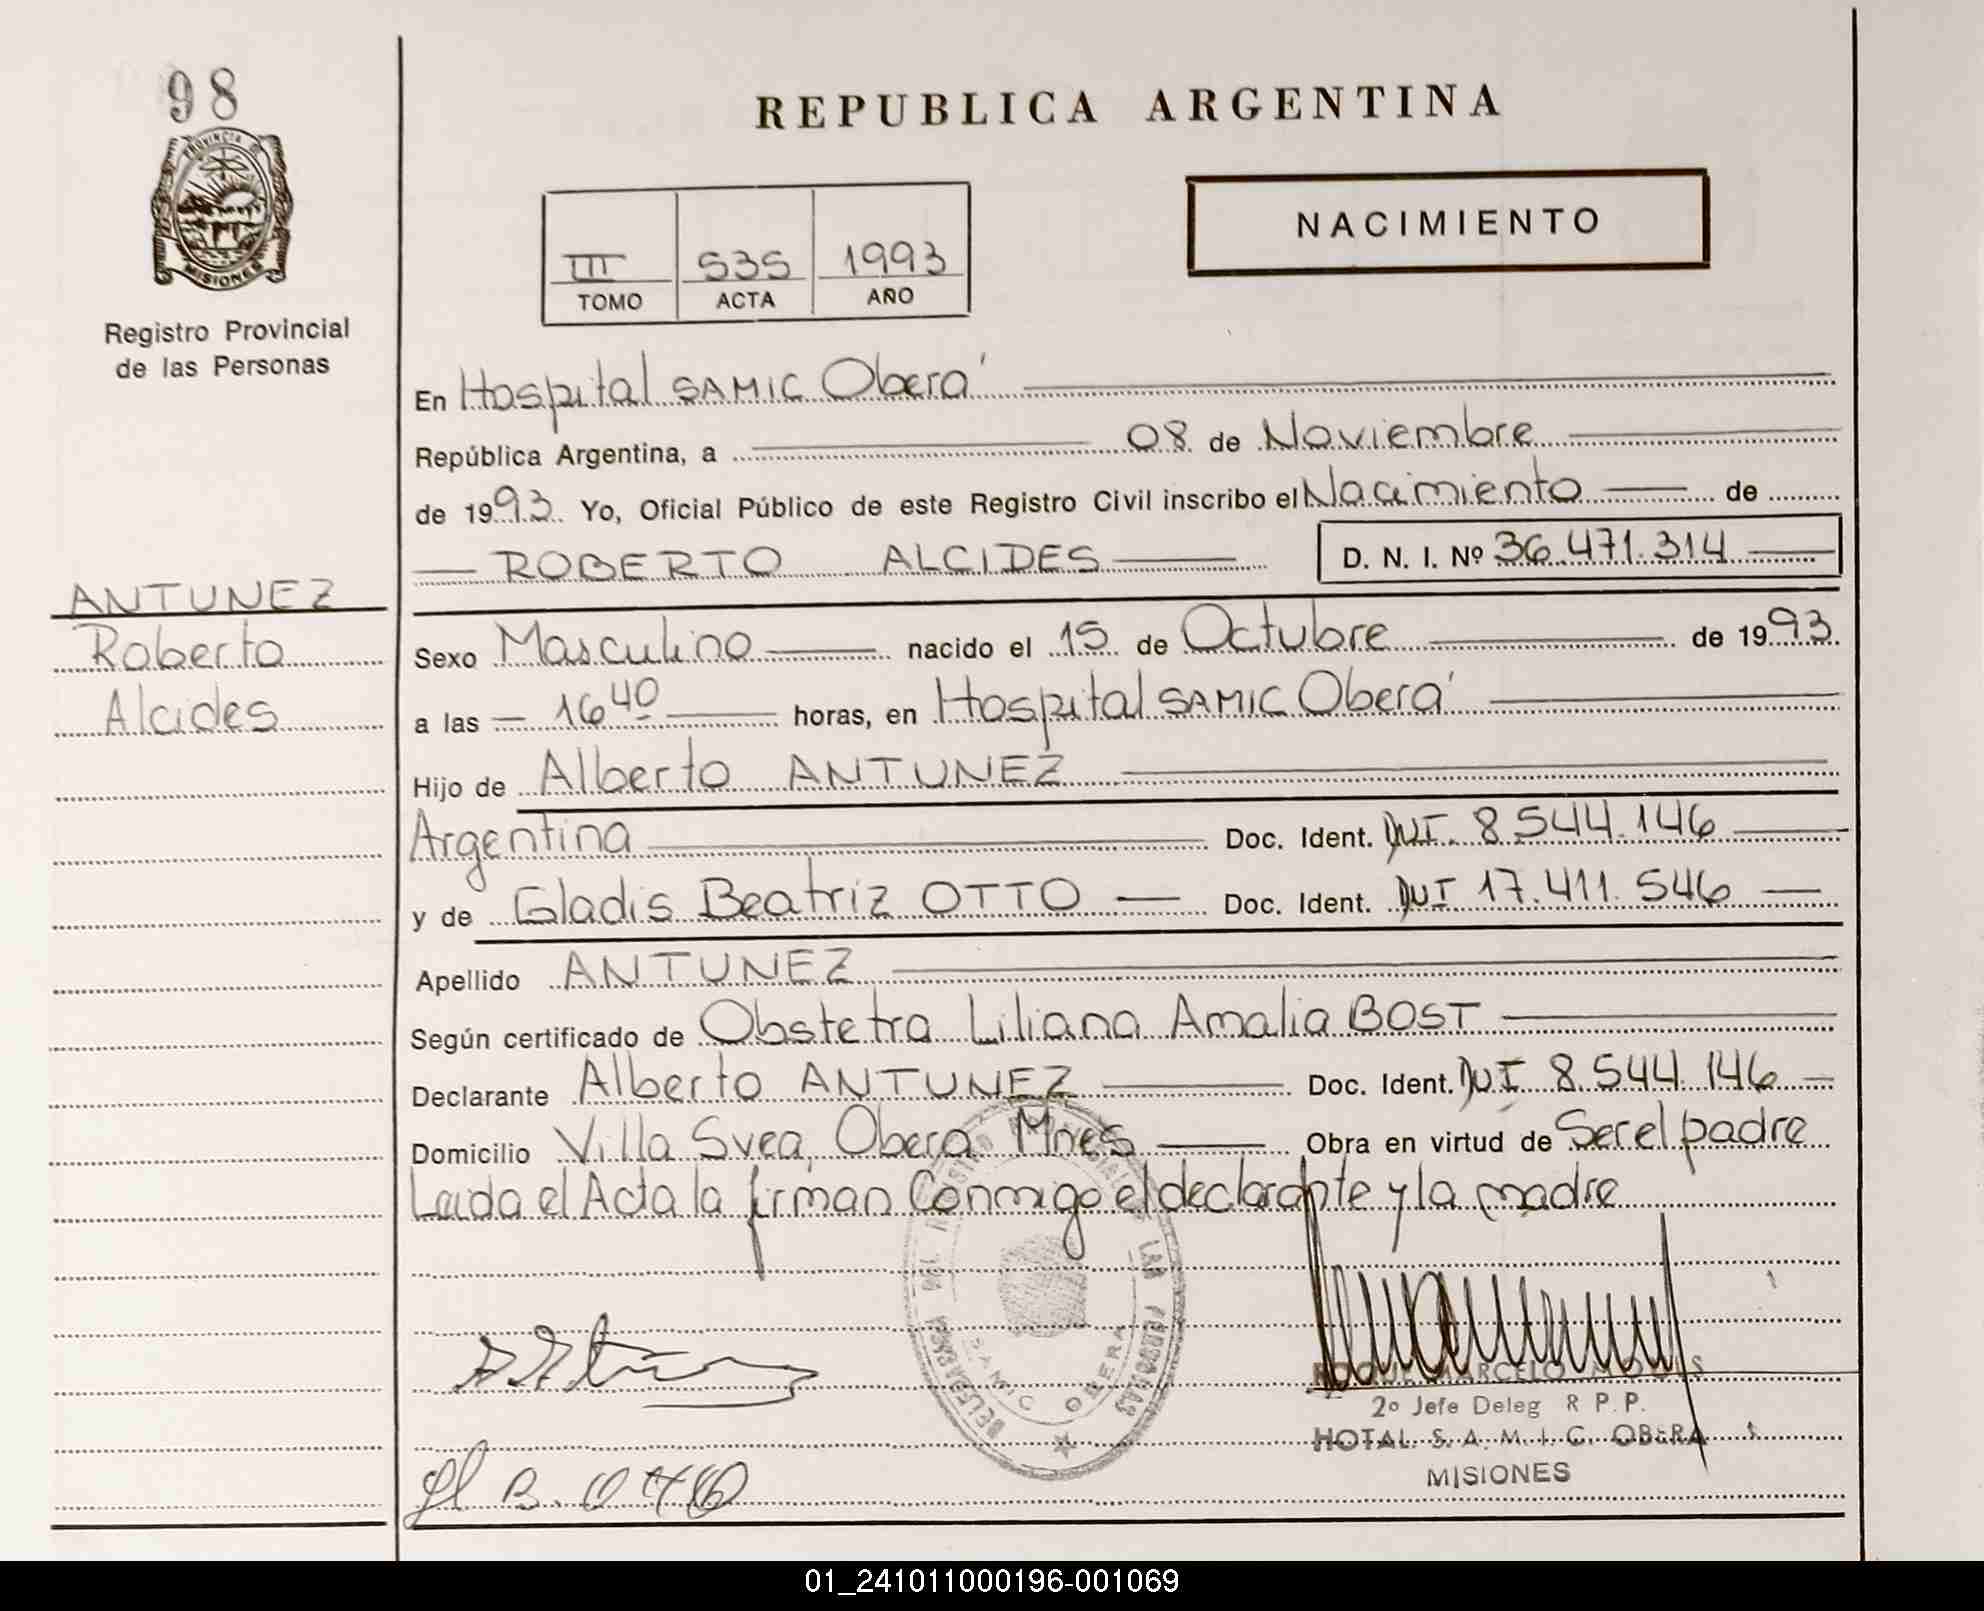 98
PROVINCIA DE
MISIONES
Registro Provincial
de las Personas
ANTUNEZ
Roberto
Alcides
REPUBLICA ARGENTINA
III 535 1993
TOMO ACTA AÑO
NACIMIENTO
En Hospital SAMIC Oberá
República Argentina, a 08 de Noviembre
de 1993. Yo, Oficial Público de este Registro Civil inscribo el Nacimiento de
ROBERTO ALCIDES D. N. I. Nº 36.471.314
Sexo Masculino nacido el 15 de Octubre de 1993.
a las 16 40 horas, en Hospital SAMIC Oberá
Hijo de Alberto ANTUNEZ
Argentina Doc. Ident. DNI. 8.544.146
y de Gladis Beatriz OTTO Doc. Ident. DNI 17.411.546
Apellido ANTUNEZ
Según certificado de Obstetra Liliana Amalia BOST
Declarante Alberto ANTUNEZ Doc. Ident. DNI 8.544.146
Domicilio Villa Svea, Obera Mnes Obra en virtud de Ser el padre
Leida el Acta la firman Conmigo el declarante y la madre
SAMIC OBERA
MARCELO
2º Jefe Deleg R P. P.
HOTAL. S. A. M. I. C. OBERA
MISIONES
01_241011000196-001069